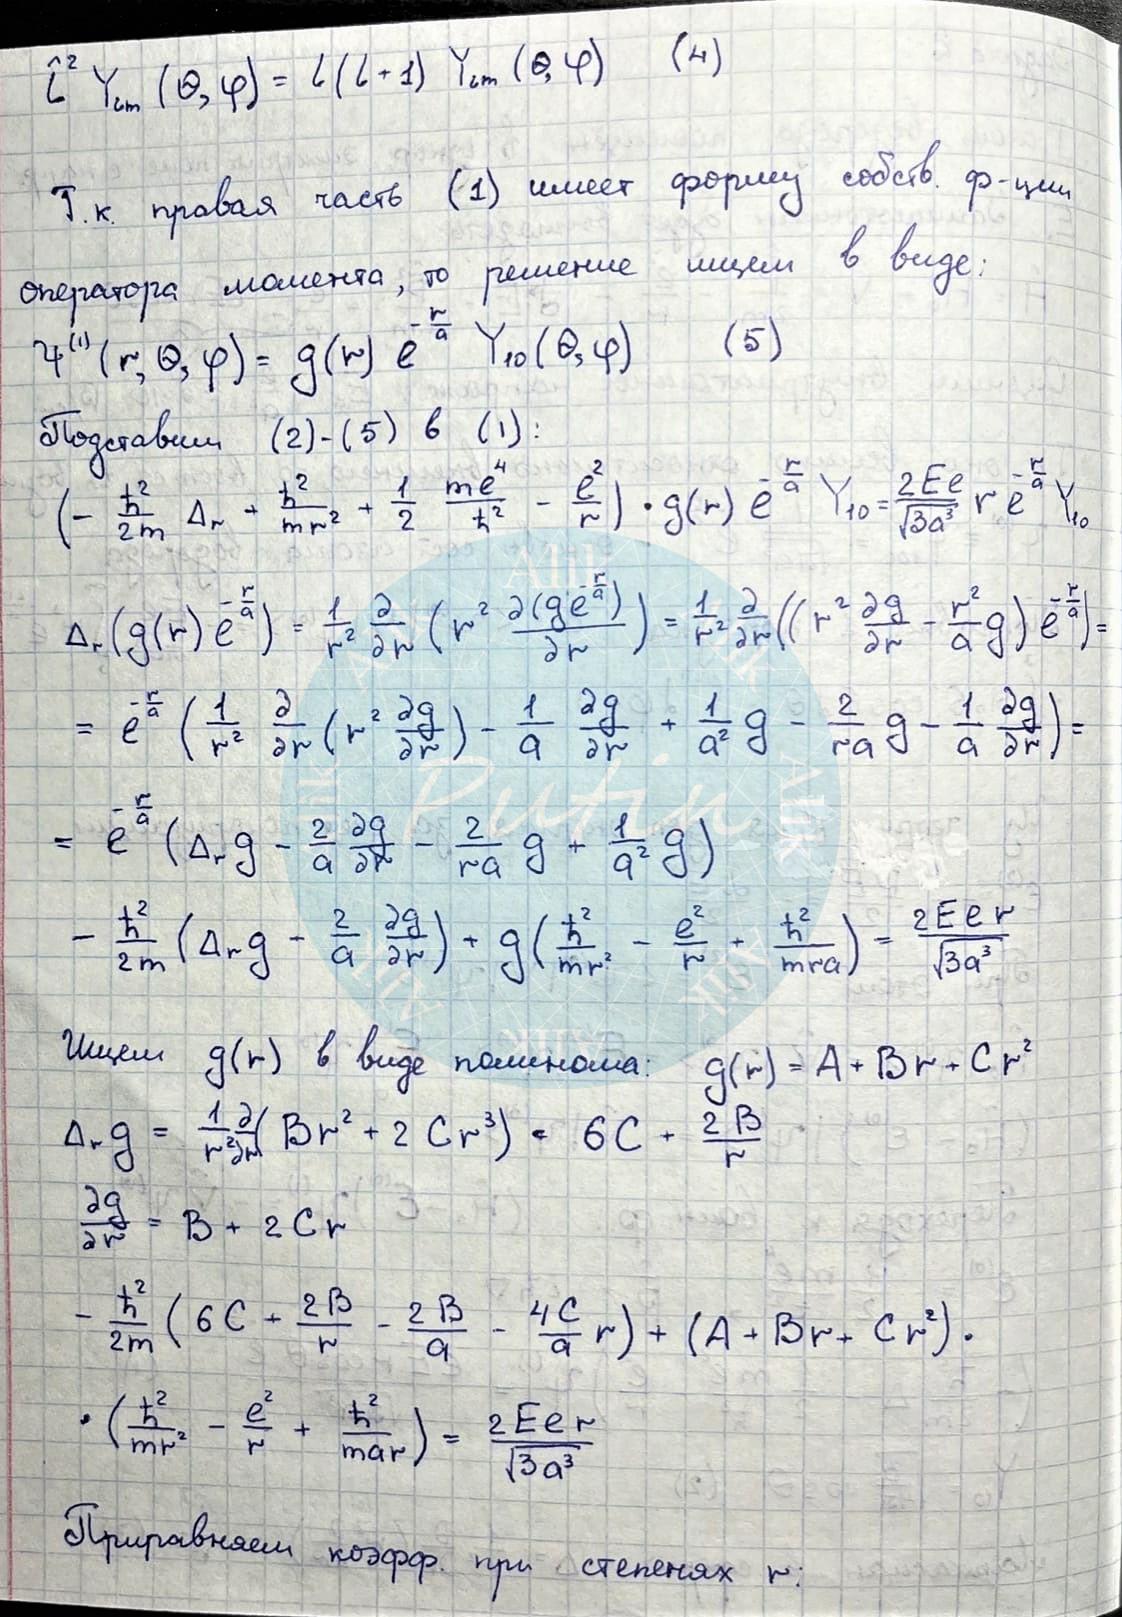 L̂² Yₗₘ (θ, φ) = l(l+1) Yₗₘ (θ, φ) (4)
Т.к. правая часть (1) имеет форму собств. ф-ции
оператора момента, то решение ищем в виде:
Ψ⁽¹⁾(r, θ, φ) = g(r) e^{-r/a} Y₁₀(θ, φ) (5)
Подставим (2)-(5) в (1):
(- ħ²/2m Δᵣ + ħ²/mr² + 1/2 me⁴/ħ² - e²/r) · g(r) e^{-r/a} Y₁₀ = 2Ee/√3a³ r e^{-r/a} Y₁₀
Δᵣ(g(r) e^{-r/a}) = 1/r² ∂/∂r (r² ∂(g e^{-r/a})/∂r) = 1/r² ∂/∂r ((r² ∂g/∂r - r²/a g) e^{-r/a}) =
= e^{-r/a} (1/r² ∂/∂r (r² ∂g/∂r) - 1/a ∂g/∂r + 1/a² g - 2/ra g - 1/a ∂g/∂r) =
= e^{-r/a} (Δᵣg - 2/a ∂g/∂r - 2/ra g + 1/a² g)
- ħ²/2m (Δᵣg - 2/a ∂g/∂r) + g(ħ²/mr² - e²/r + ħ²/mra) = 2Eer/√3a³
Ищем g(r) в виде полинома: g(r) = A + Br + Cr²
Δᵣg = 1/r² ∂/∂r (Br² + 2Cr³) = 6C + 2B/r
∂g/∂r = B + 2Cr
- ħ²/2m (6C + 2B/r - 2B/a - 4C/a r) + (A + Br + Cr²) ·
· (ħ²/mr² - e²/r + ħ²/mar) = 2Eer/√3a³
Приравняем коэфф. при степенях r:
Putin